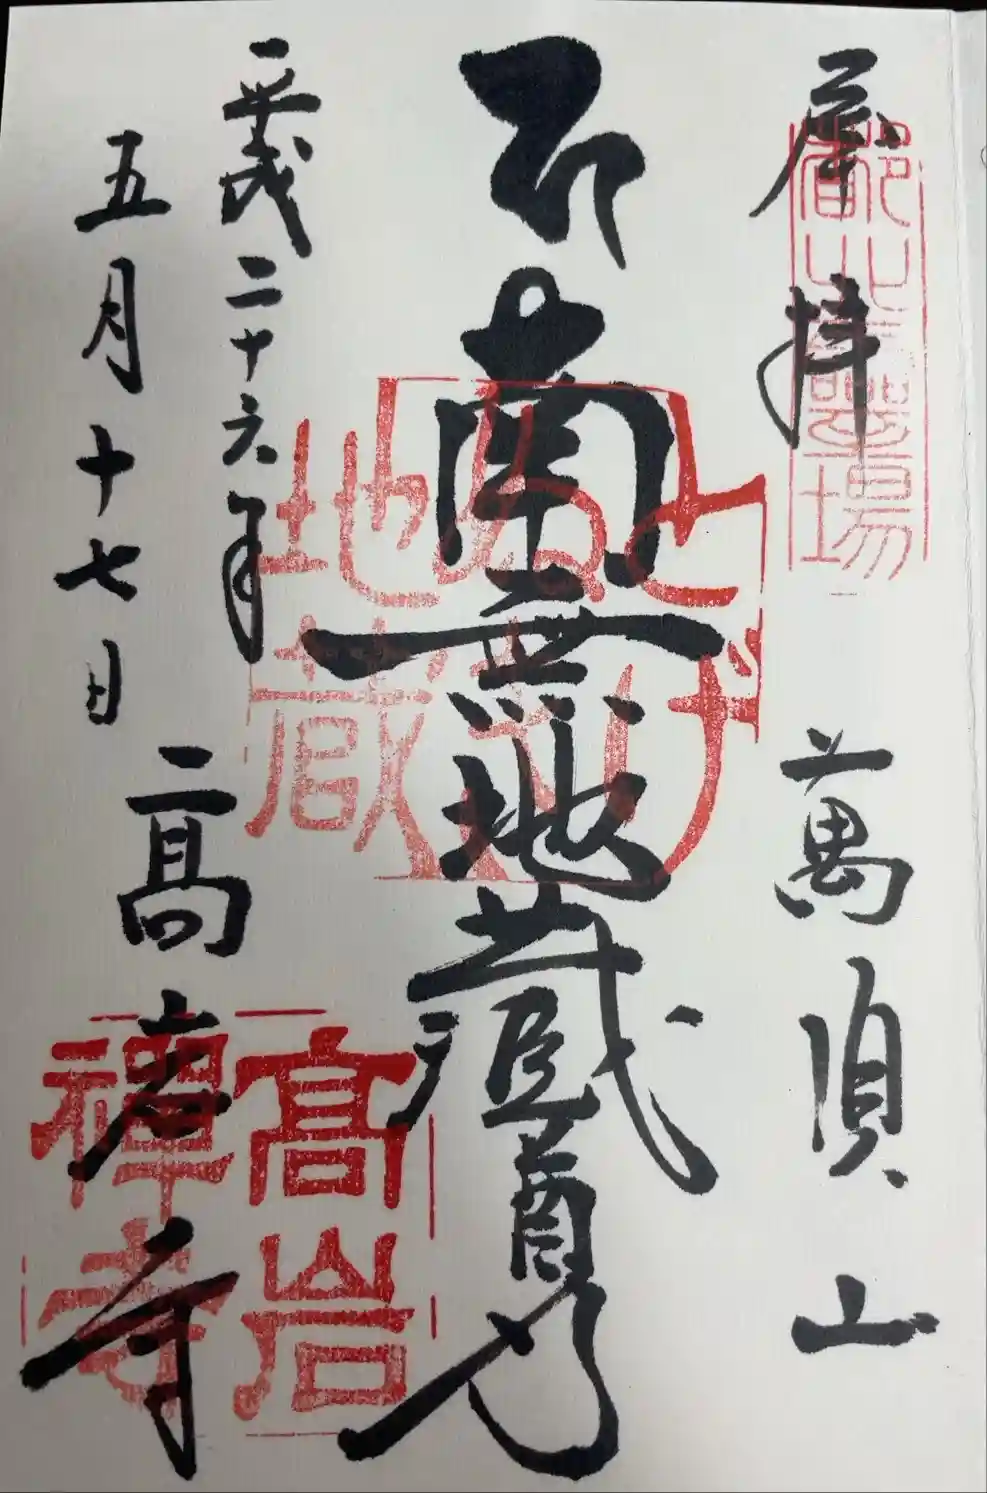 拝
萬頂山
都北靈場
南無地蔵尊
とげぬき
地蔵
平成二十六年
五月十七日
髙岩寺
髙岩
禅寺